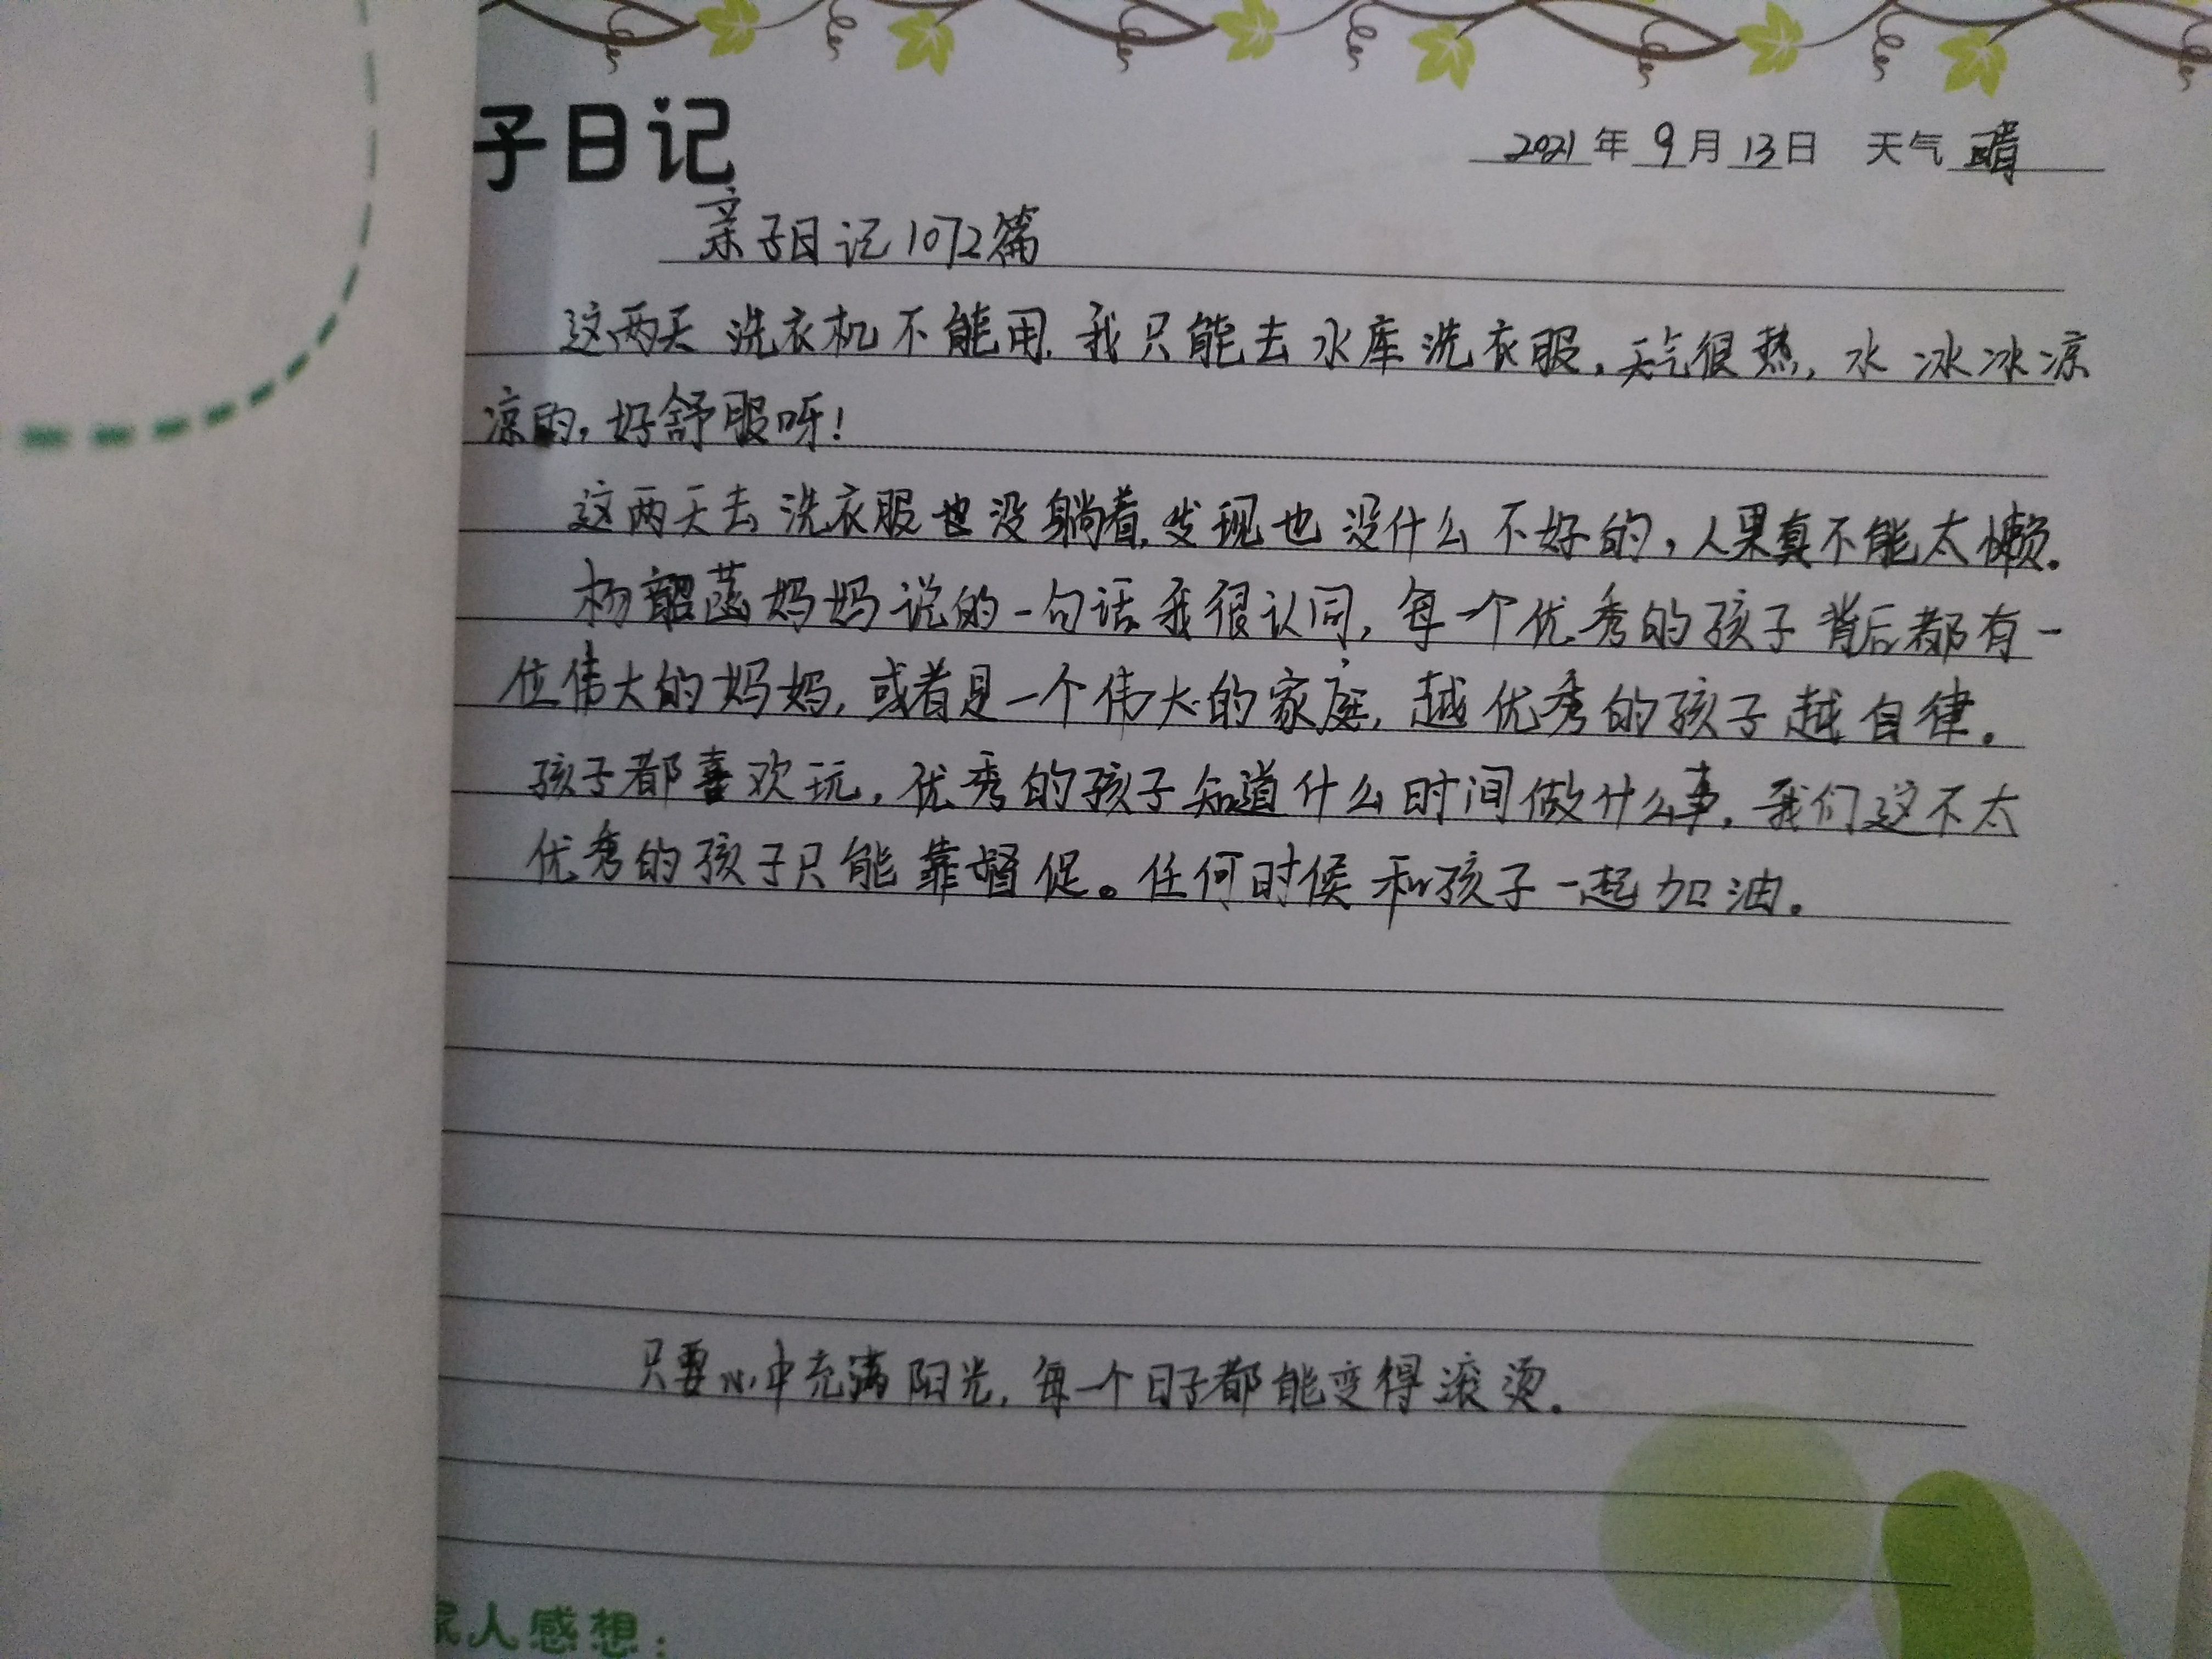 子日记
2021年9月13日 天气晴
亲子日记1072篇
这两天洗衣机不能用.我只能去水库洗衣服,天气很热,水冰冰凉
凉的,好舒服呀!
这两天去洗衣服也没躺着,发现也没什么不好的,人果真不能太懒.
杨韶菡妈妈说的一句话我很认同,每一个优秀的孩子背后都有一
位伟大的妈妈,或者是一个伟大的家庭,越优秀的孩子越自律。
孩子都喜欢玩,优秀的孩子知道什么时间做什么事,我们这不太
优秀的孩子只能靠督促。任何时候和孩子一起加油。
只要心中充满阳光,每一个日子都能变得滚烫。
家人感想: